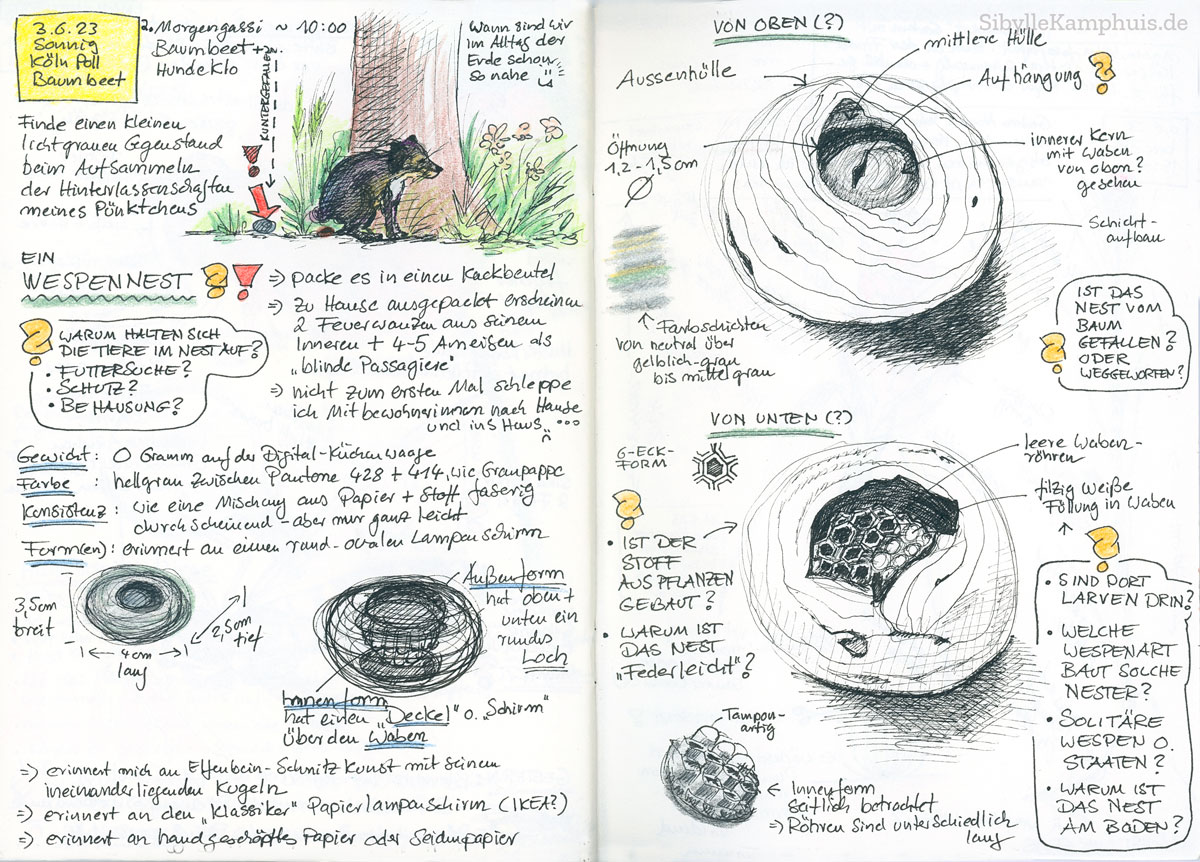 3.6.23
Sonnig
Köln Poll
Baumbeet
2. Morgengassi ~ 10:00
Baumbeet +
Hundeklo
RUNTERGEFALLEN
Wann sind wir
im Alltag der
Erde schon
so nahe
Finde einen kleinen
lichtgrauen Gegenstand
beim Aufsammeln
der Hinterlassenschaften
meines Pünktchens
EIN
WESPENNEST ? !
? WARUM HALTEN SICH
DIE TIERE IM NEST AUF?
• FUTTERSUCHE?
• SCHUTZ?
• BEHAUSUNG?
=> packe es in einen Kackbeutel
=> zu Hause ausgepackt erscheinen
2 Feuerwanzen aus seinem
Inneren + 4-5 Ameisen als
„blinde Passagiere"
=> nicht zum ersten Mal schleppe
ich Mitbewohnerinnen nach Hause
und ins Haus ...
Gewicht: 0 Gramm auf der Digital-Küchenwaage
Farbe: hellgrau zwischen Pantone 428 + 414, wie Graupappe
Konsistenz: wie eine Mischung aus Papier + Stoff, faserig
durchscheinend - aber nur ganz leicht
Form(en): erinnert an einen rund-ovalen Lampenschirm
3,5cm
breit
4cm
lang
2,5cm
tief
Außenform
hat oben +
unten ein
rundes
Loch
Innenform
hat einen „Deckel" o. „Schirm"
über den Waben
=> erinnert mich an Elfenbein-Schnitzkunst mit seinen
ineinanderliegenden Kugeln
=> erinnert an den „Klassiker" Papierlampenschirm (IKEA?)
=> erinnert an handgeschöpftes Papier oder Seidenpapier
SibylleKamphuis.de
VON OBEN (?)
mittlere Hülle
Aussenhülle
Aufhängung ?
Öffnung
1,2 - 1,5 cm
Ø
innerer Kern
mit Waben
von oben?
gesehen
Schicht-
aufbau
Farbschichten
von neutral über
gelblich-grau
bis mittelgrau
?
IST DAS
NEST VOM
BAUM
GEFALLEN?
ODER
WEGGEWORFEN?
VON UNTEN (?)
6-ECK-
FORM
leere Waben-
röhren
filzig weiße
Füllung in Waben
?
• IST DER
STOFF
AUS PFLANZEN
GEBAUT?
• WARUM IST
DAS NEST
„Federleicht"?
?
• SIND DORT
LARVEN DRIN?
• WELCHE
WESPENART
BAUT SOLCHE
NESTER?
• SOLITÄRE
WESPEN O.
STAATEN?
• WARUM IST
DAS NEST
AM BODEN?
Tampon-
artig
Innenform
seitlich betrachtet
=> Röhren sind unterschiedlich
lang